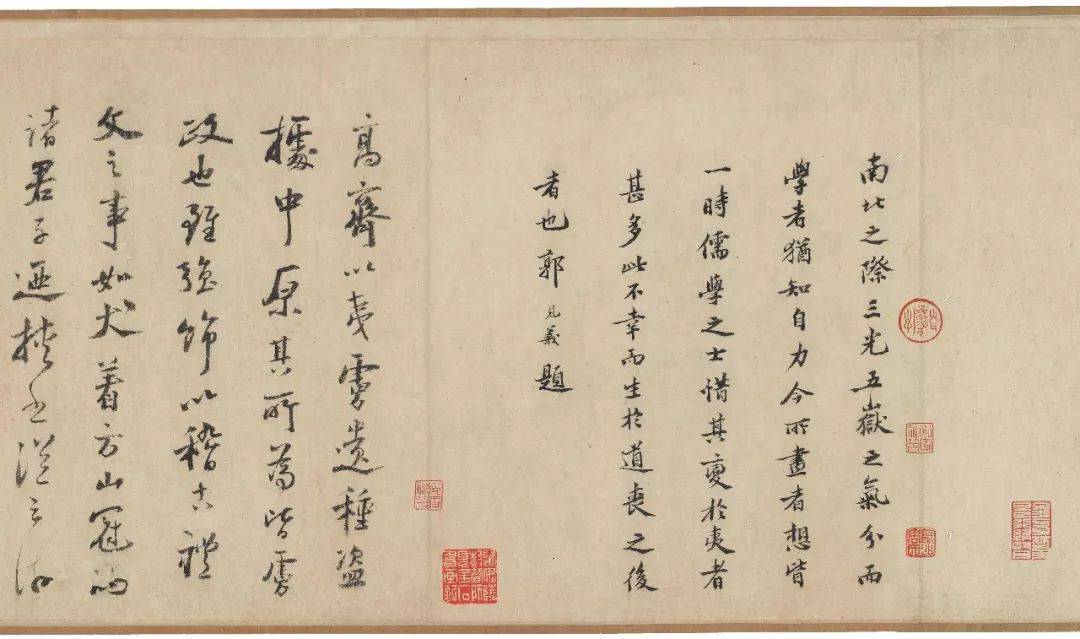 南北之際三光五嶽之氣分而
學者猶知自力今所畫者想皆
一時儒學之士惜其變於夷者
甚多此不幸而生於道喪之後
者也郭見義題
高齊以夷虜遺種盜
據中原其所為皆虜
政也雖強飾以稽古禮
文之事如犬著方山冠而
諸君子迺挾書從之游